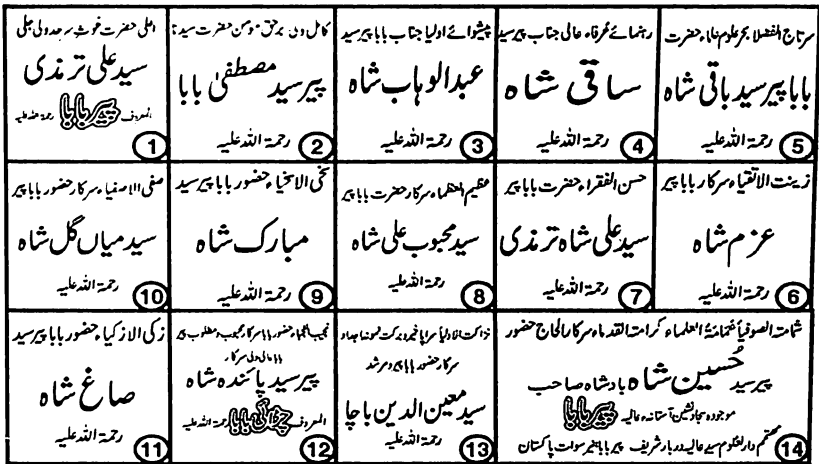 اعلیٰ حضرت غوث
سید علی ترمذی
المعروف پیر بابا رحمۃ اللہ علیہ
1
کامل ولی برحق مومن حضرت سیدنا
پیر سید مصطفیٰ بابا
رحمۃ اللہ علیہ
2
پیشوائے اولیا جناب بابا پیر سید
عبدالوہاب شاہ
رحمۃ اللہ علیہ
3
رہنمائے عُرفاء عالی جناب پیر سید
ساقی شاہ
رحمۃ اللہ علیہ
4
سرتاج الفضلا بحر علوم حضرت
بابا پیر سید باقی شاہ
رحمۃ اللہ علیہ
5
زینت الاتقیاء سرکار بابا پیر
عزم شاہ
رحمۃ اللہ علیہ
6
حسن الفقراء حضرت بابا پیر
سید علی شاہ ترمذی
رحمۃ اللہ علیہ
7
عظیم العظماء سرکار حضرت بابا پیر
سید محبوب علی شاہ
رحمۃ اللہ علیہ
8
سخی الاسخیاء حضور بابا پیر سید
مبارک شاہ
رحمۃ اللہ علیہ
9
صفی الاصفیاء سرکار حضور بابا پیر
سید میاں گل شاہ
رحمۃ اللہ علیہ
10
زکی الازکیاء حضور بابا پیر سید
صاغ شاہ
رحمۃ اللہ علیہ
11
حضور بابا سرکار محبوب و مطلوب پیر
بابا عالی ولی سرکار
پیر سید پائندہ شاہ
المعروف بابا رحمۃ اللہ علیہ
12
سراپا خیر و برکت نمونہ اجداد
سرکار حضور بابا پیر و مرشد
سید معین الدین باچا
رحمۃ اللہ علیہ
13
شمامۃ الصوفیا العلماء کرامت القدماء سرکار الحاج حضور
پیر سید حُسین شاہ بادشاہ صاحب
موجودہ سجادہ نشین آستانہ عالیہ پیر بابا
مہتمم دارالعلوم سیدیہ عالیہ دربار شریف پیر بابا بنیر سوات پاکستان
14